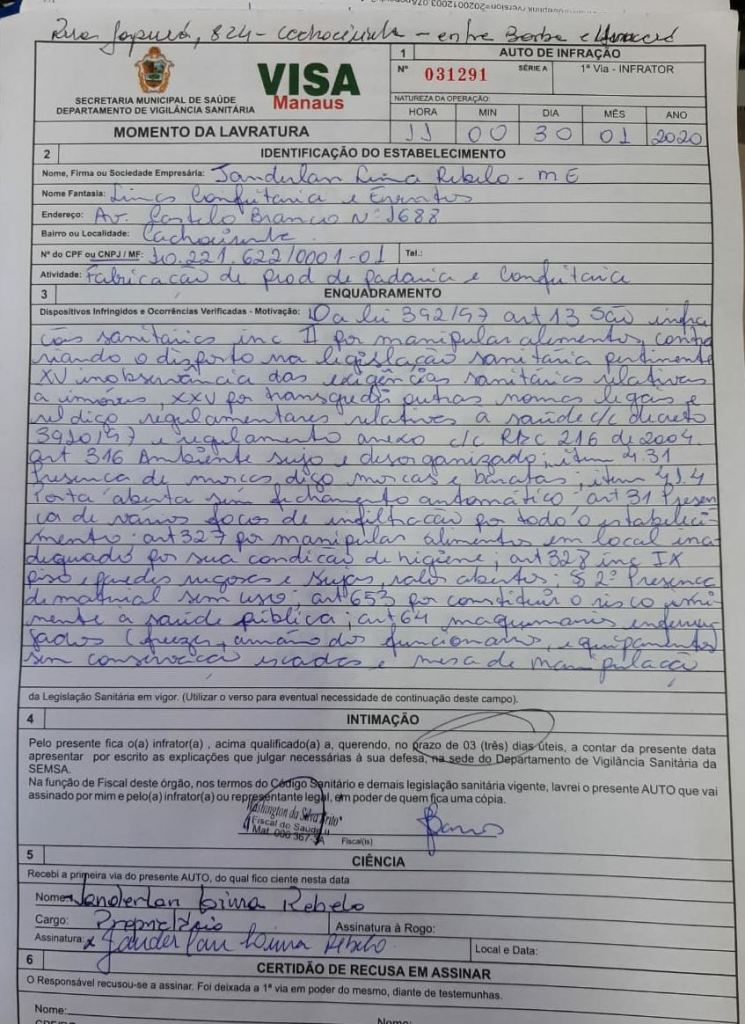 Rua Japurá, 824 - Cachoeirinha - entre Borba e
1 AUTO DE INFRAÇÃO
VISA
Manaus
Nº 031291 SÉRIE A 1ª Via - INFRATOR
SECRETARIA MUNICIPAL DE SAÚDE
DEPARTAMENTO DE VIGILÂNCIA SANITÁRIA
NATUREZA DA OPERAÇÃO:
MOMENTO DA LAVRATURA
HORA MIN DIA MÊS ANO
11 00 30 01 2020
2 IDENTIFICAÇÃO DO ESTABELECIMENTO
Nome, Firma ou Sociedade Empresária: Janderlan Lima Rebelo - ME
Nome Fantasia: Confeitaria e Eventos
Endereço: Av. Castelo Branco Nº 1688
Bairro ou Localidade: Cachoeirinha
Nº do CPF ou CNPJ / MF: 10.221.622/0001-01 Tel.:
Atividade: Fabricação de prod de padaria e Confeitaria
3 ENQUADRAMENTO
Dispositivos Infringidos e Ocorrências Verificadas - Motivação: Da lei 392/97 art 13 São infra
ções sanitárias inc II por manipular alimentos, contra
riando o disposto na legislação sanitária pertinente
XV inobservância das exigências sanitárias relativas
a imóveis, XXV por transgredir outras normas legais e
digo regulamentares relativas a saúde c/c decreto
3910/97 e regulamento anexo c/c RDC 216 de 2004.
art 316 Ambiente sujo e desorganizado; item 4.31
Presença de moscas digo moscas e baratas; item 4.1.4
Porta aberta sem fechamento automático; art 31 Presen
ça de vários focos de infiltração por todo o estabeleci-
mento; art 327 por manipular alimentos em local ina
dequado por sua condição de higiene; art 328 inc IX
piso e paredes rugosos e sujos, ralos abertos; § 2º Presença
de material sem uso; art 653 por constituir o risco
à saúde pública; art 64 maquinários enferru
jados (freezer, armário do funcionário, equipamentos
sem conservação e mesa de manipulação
da Legislação Sanitária em vigor. (Utilizar o verso para eventual necessidade de continuação deste campo).
4 INTIMAÇÃO
Pelo presente fica o(a) infrator(a) , acima qualificado(a) a, querendo, no prazo de 03 (três) dias úteis, a contar da presente data
apresentar por escrito as explicações que julgar necessárias à sua defesa, na sede do Departamento de Vigilância Sanitária da
SEMSA.
Na função de Fiscal deste órgão, nos termos do Código Sanitário e demais legislação sanitária vigente, lavrei o presente AUTO que vai
assinado por mim e pelo(a) infrator(a) ou representante legal, em poder de quem fica uma cópia.
Washington da Silva Brito
Fiscal de Saúde II
Mat. 000.367-3A
Fiscal(is)
5 CIÊNCIA
Recebi a primeira via do presente AUTO, do qual fico ciente nesta data
Nome: Janderlan Lima Rebelo
Cargo: Proprietário Assinatura à Rogo:
Assinatura: x Janderlan Lima Rebelo Local e Data:
6 CERTIDÃO DE RECUSA EM ASSINAR
O Responsável recusou-se a assinar. Foi deixada a 1ª via em poder do mesmo, diante de testemunhas.
Nome: Nome: